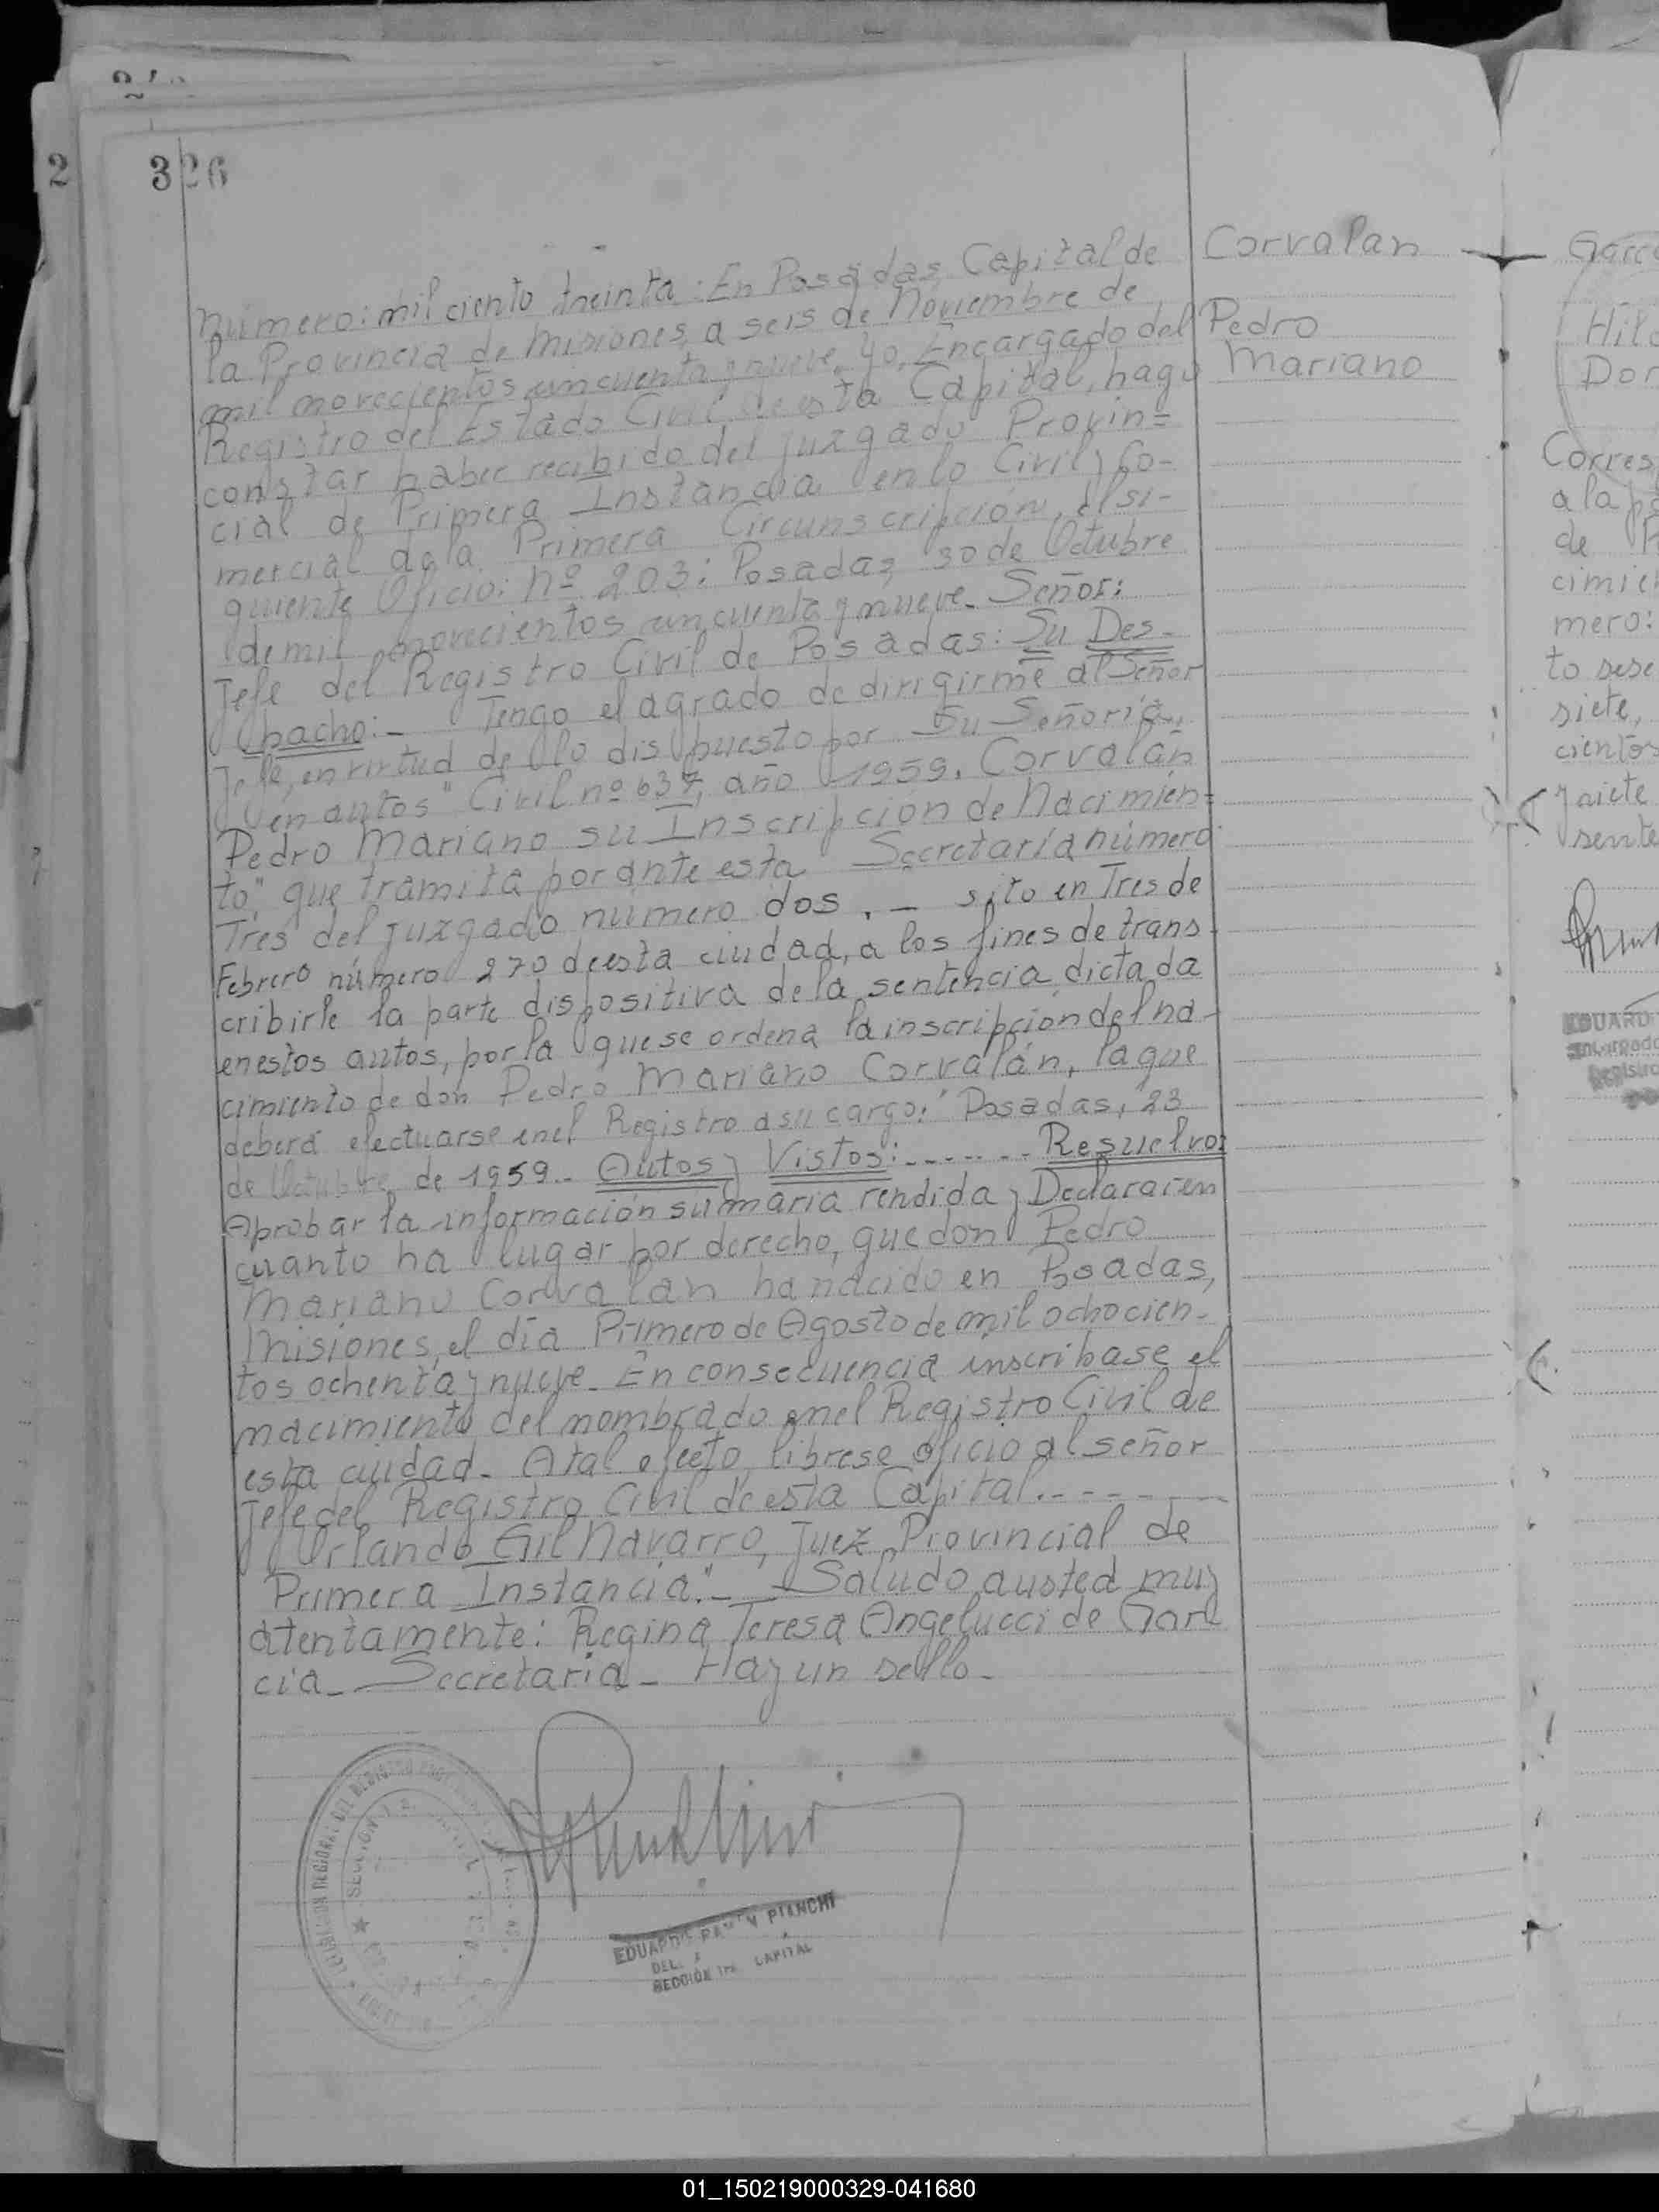 326
2
Corvalan
Pedro
Mariano
Número: mil ciento treinta: En Posadas, Capital de
la Provincia de Misiones, a seis de Noviembre de
mil novecientos cincuenta y nueve. Yo, Encargado del
Registro del Estado Civil, de esta Capital, hago
constar haber recibido del Juzgado Provin=
cial de Primera Instancia en lo Civil y Co-
mercial de la Primera Circunscripción, el si-
guiente Oficio: Nº 203: Posadas, 30 de Octubre
de mil novecientos cincuenta y nueve. Señor:
Jefe del Registro Civil de Posadas: Su Des-
pacho:- Tengo el agrado de dirigirme al Señor
Jefe, en virtud de lo dispuesto por Su Señoría,
en autos "Civil nº 637, año 1959. Corvalán
Pedro Mariano su Inscripción de Nacimien=
to", que tramita por ante esta Secretaría número
Tres del Juzgado número dos.- sito en Tres de
Febrero número 270 de esta ciudad, a los fines de trans-
cribirle la parte dispositiva de la sentencia dictada
en estos autos, por la que se ordena la inscripción del na-
cimiento de don Pedro Mariano Corvalán, la que
deberá efectuarse en el Registro a su cargo: "Posadas, 23
de Octubre de 1959.- Autos y Vistos:------- Resuelvo:
Aprobar la información sumaria rendida y Declarar en
cuanto ha lugar por derecho, que don Pedro
Mariano Corvalan ha nacido en Posadas,
Misiones, el día Primero de Agosto de mil ochocien-
tos ochenta y nueve. En consecuencia inscribase el
nacimiento del nombrado en el Registro Civil de
esta ciudad. A tal efecto, librese oficio al señor
Jefe del Registro Civil de esta Capital.------
Orlando Gil Navarro, Juez Provincial de
Primera Instancia".- Saludo a usted muy
atentamente: Regina Teresa Angelucci de Gar
cia - Secretaria - Hay un sello -
EDUARDO RAMON PIANCHI
SECCIÓN 1ra CAPITAL
Garc
Hila
Dor
Corres
a la pa
de
cimie
mero:
to sese
siete,
cientos
y siete
sente
EDUARD
Encargado
Registro
01_150219000329-041680